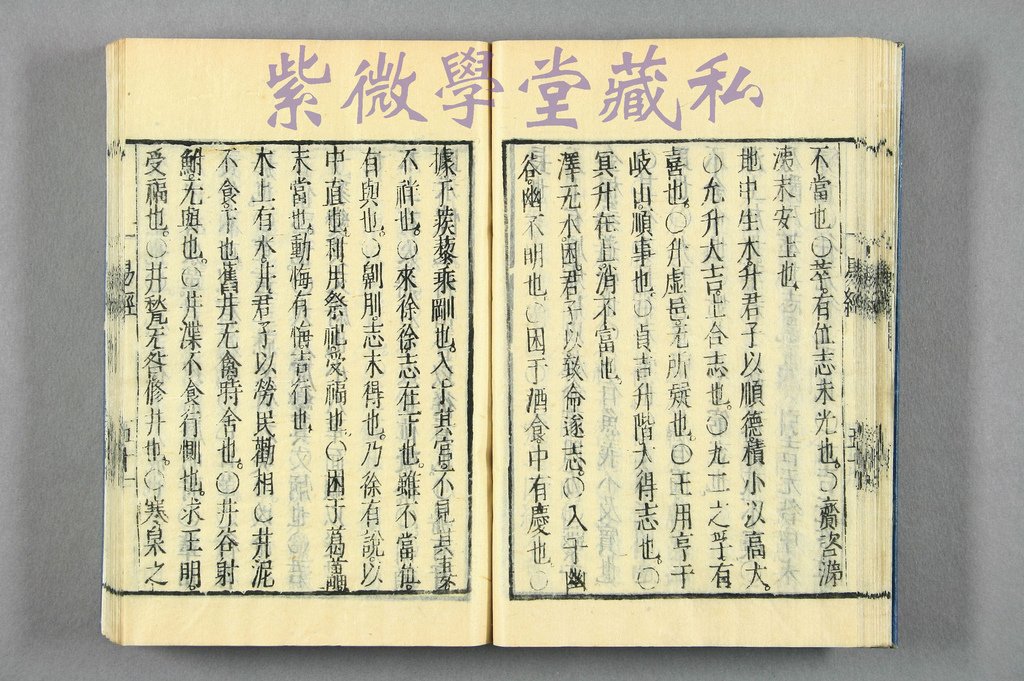 紫微學堂藏私
易經
不當也。○萃有位志未光也。○齎咨涕
洟未安上也。
地中生木升君子以順德積小以高大。
○允升大吉上合志也。○九二之孚有
喜也。○升虛邑无所疑也。○王用亨于
岐山順事也。○貞吉升階大得志也。○
冥升在上消不富也。
澤无水困君子以致命遂志。○入于幽
谷幽不明也。○困于酒食中有慶也。○
據于蒺藜乘剛也。入于其宮不見其妻
不祥也。○來徐徐志在下也。雖不當位
有與也。○劓刖志未得也。乃徐有說以
中直也。利用祭祀受福也。○困于葛藟
未當也。動悔有悔吉行也。
木上有水井君子以勞民勸相○井泥
不食下也舊井无禽時舍也。○井谷射
鮒无與也。○井渫不食行惻也。求王明。
受福也。○井甃无咎修井也。○寒泉之
易經